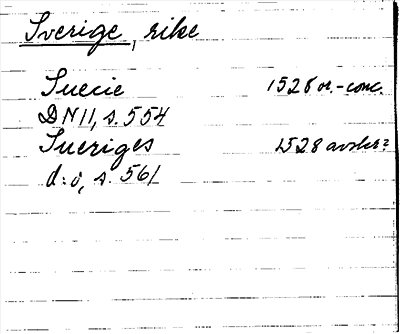 Sverige, rike
Suecie 1528 or.-conc.
DN 11, s. 554
Sueriges 1528 avskr?
d:o, s. 561